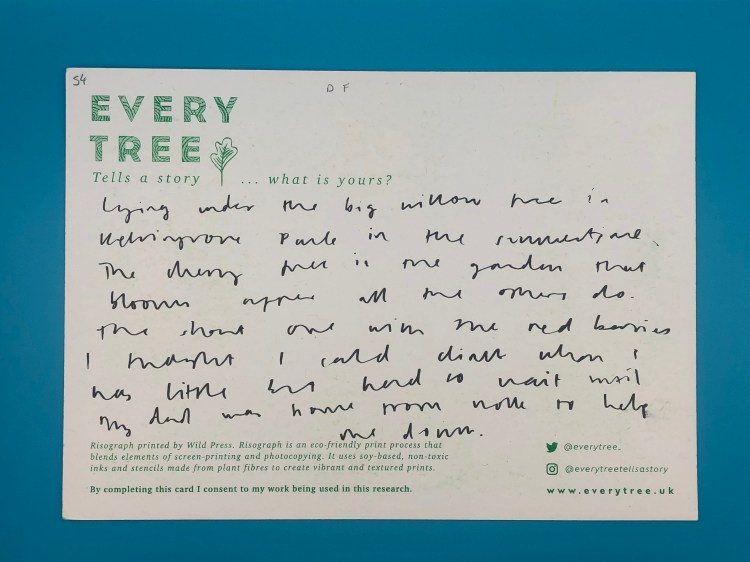 54
D F
EVERY
TREE
Tells a story ... what is yours?
lying under the big willow tree in
Kelvingrove Park in the summertime.
The cherry tree in the garden that
blooms after all the others do.
The short one with the red berries
I thought I could climb when I
was little but had to wait until
my dad was home from work to help
me down.
Risograph printed by Wild Press. Risograph is an eco-friendly print process that
blends elements of screen-printing and photocopying. It uses soy-based, non-toxic
inks and stencils made from plant fibres to create vibrant and textured prints.
By completing this card I consent to my work being used in this research.
@everytree_
@everytreetellsastory
www.everytree.uk